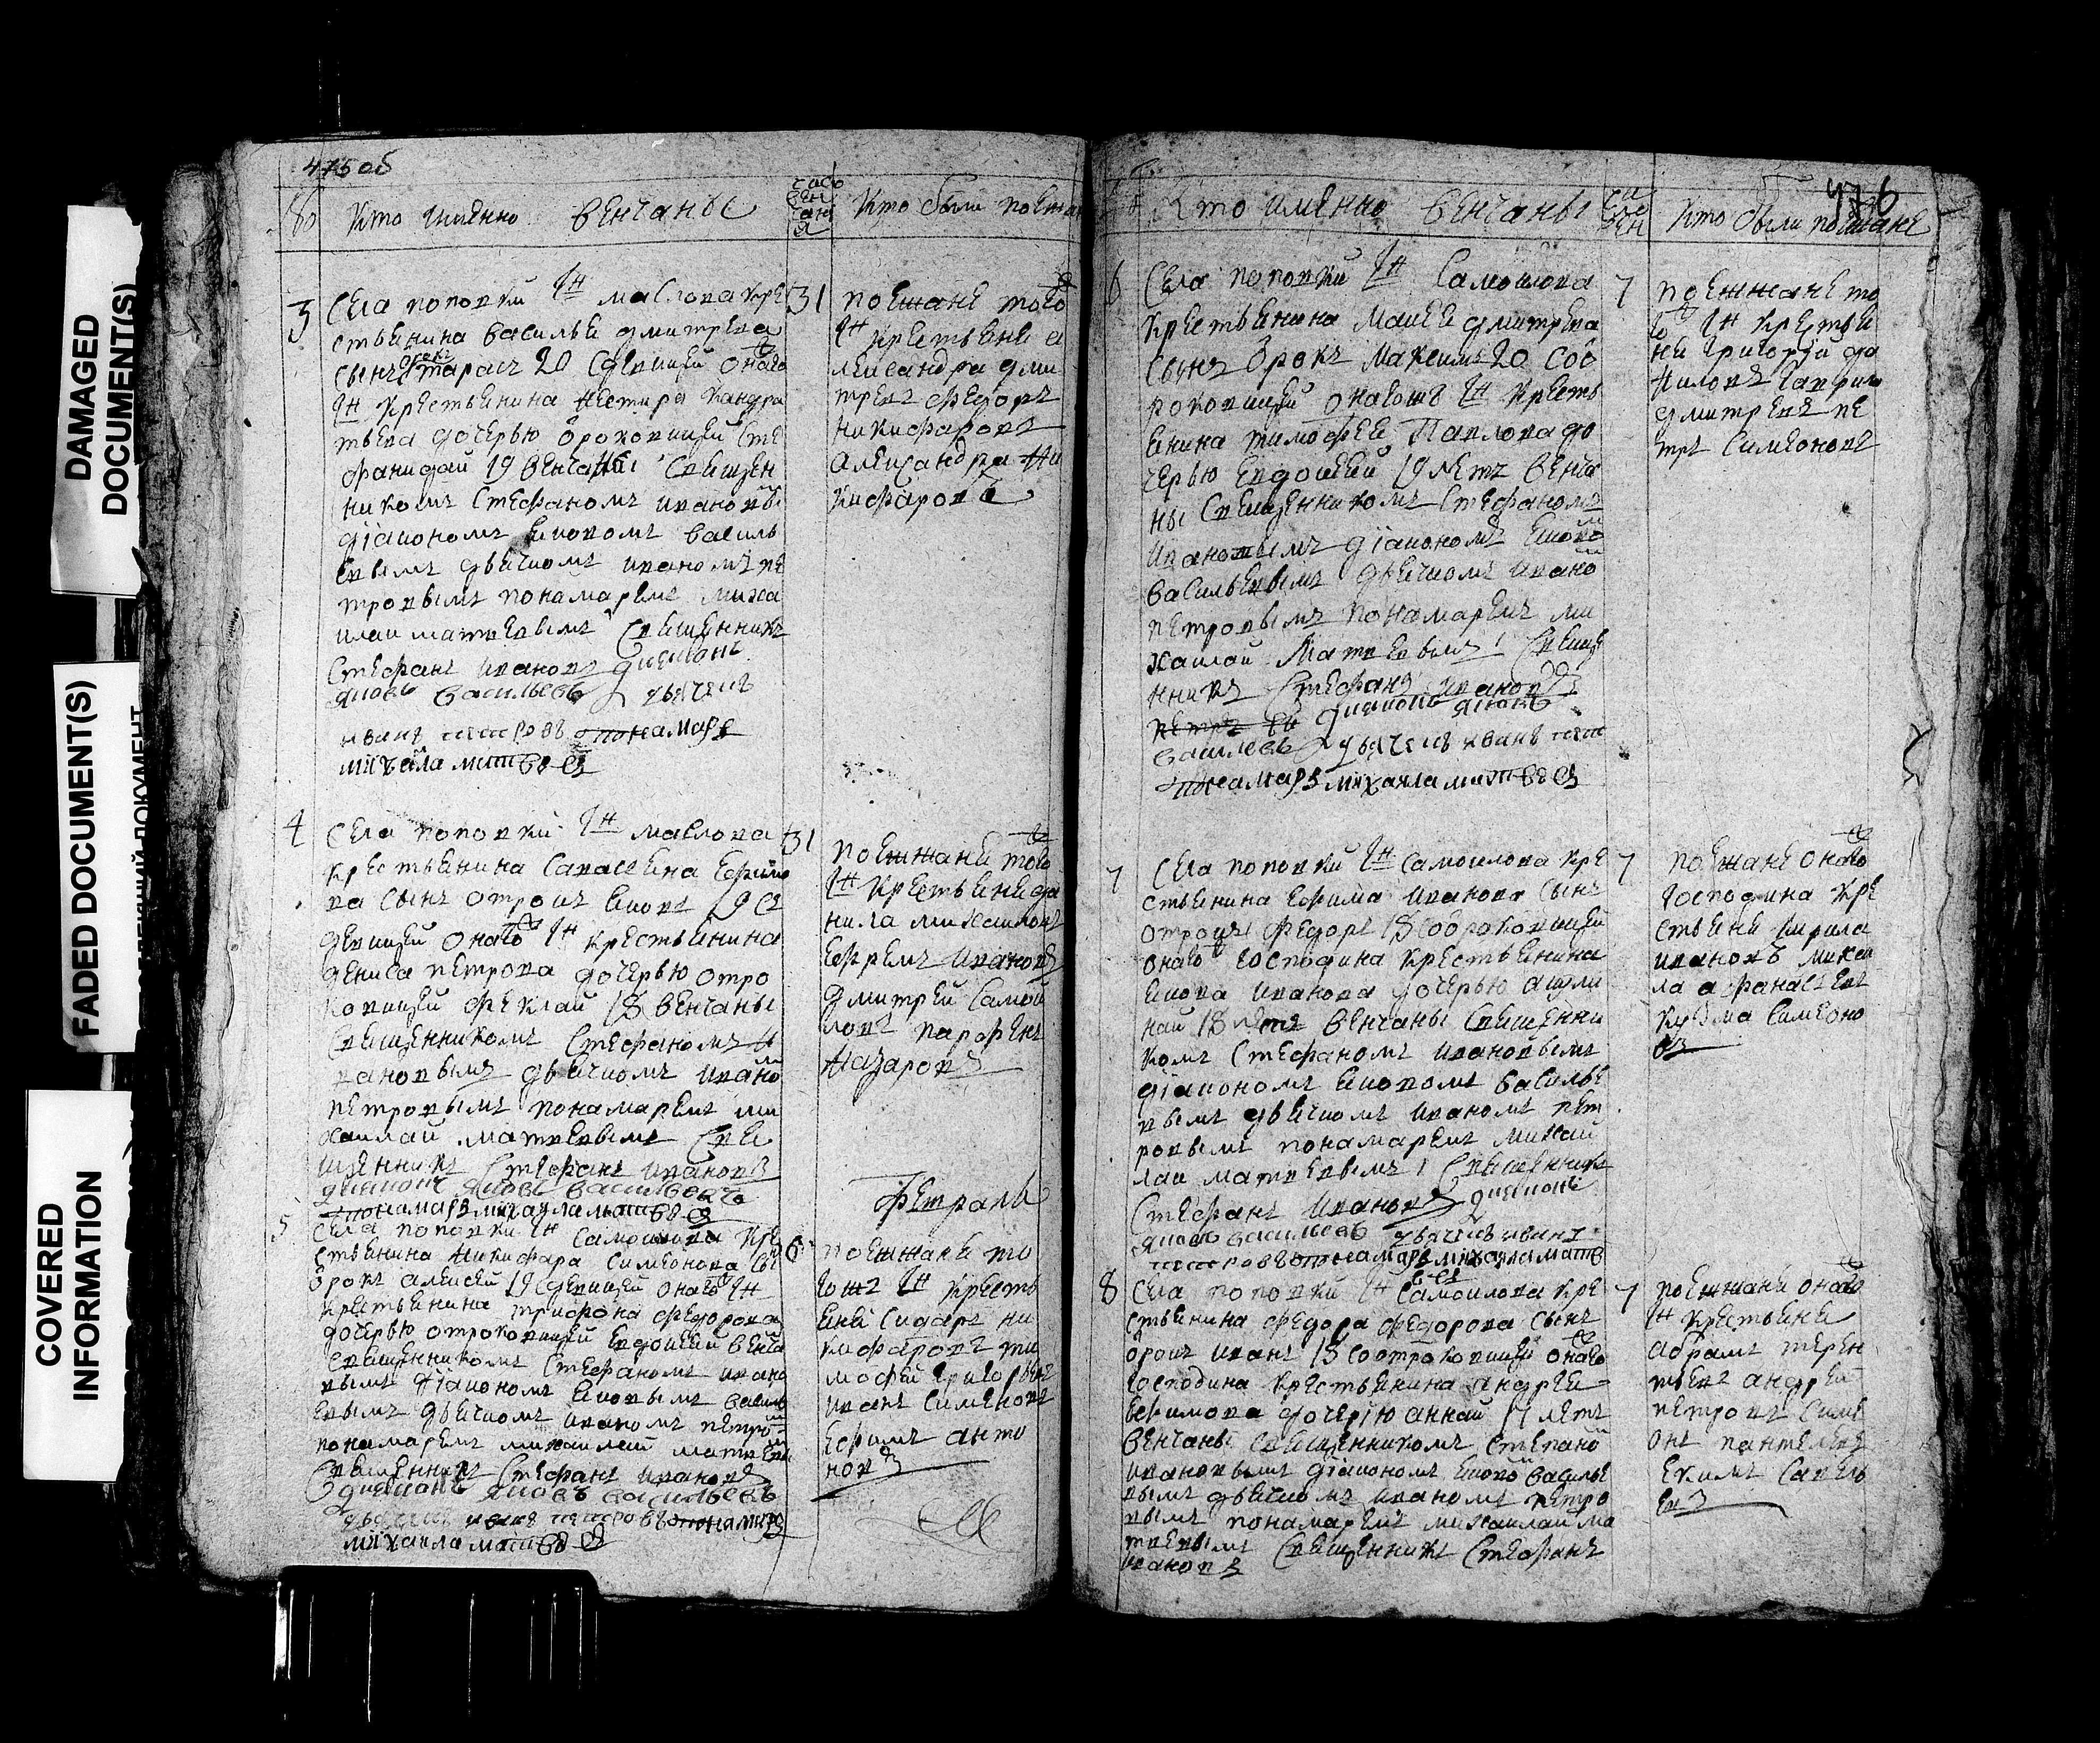 DAMAGED
DOCUMENT(S)
FADED DOCUMENT(S)
COVERED
INFORMATION
475 об
Кто имянно венчаны
Кто были поежан
3 села поповки Гн маслова кре
стьянина василья дмитрева
сынъ отрокъ тарасъ 20 з девицеи онаго
Гн крестьянина
тьева дочерью отроковицеи сте
фанидаи 19 венчаны священ
никомъ стефаномъ ивановы
диакономъ яковомъ василь
евымъ дьячкомъ иваномъ пе
тровымъ понамаремъ миха
илаи матвевымъ священникъ
стефанъ ивановъ диаконъ
яковъ васильевъ дьячекъ
иванъ петровъ понамарь
михаила матвевъ
31 поежанѣ того
Гн крестьяне а
леѯандра дми
тревъ федоръ
никифаровъ
алеѯандра ни
кифаровъ
4 села поповки Гн маслова
крестьянина савасеина ефимо
ва сынъ отрокъ яковъ 19 съ
девицеи онаго Гн крестьянина
дениса петрова дочерью отро
ковицеи феклаи 18 венчаны
священникомъ стефаномъ и
вановымъ дьячкомъ ивано
петровымъ понамаремъ ми
хаилаи матвевымъ свя
щенникъ стефанъ ивановъ
диаконъ яковъ васильевъ
понамарь михаила матвевъ
31 поежжани того
Гн крестьяне да
нила михаиловъ
ефремъ ивановъ
дмитреи самои
ловъ парфенъ
назаровъ
фетраль
5 села поповки Гн самоилова кре
стьянина никифара симонова сы
отрокъ алеѯеи 19 з девицеи онаго Гн
крестьянина трифона федорова
дочерью отроковицеи евдокеи венча
священникомъ стефаномъ ивано
вымъ диакономъ яковымъ василь
евымъ дьячкомъ иваномъ петро
понамаремъ михаилаи матвевы
священникъ стефанъ ивановъ
диаконъ яковъ васильевъ
дьячекъ иванъ петровъ понамарь
михаила матвевъ
6 поежжани то
гожъ Гн кресть
яни сидаръ ни
кифаровъ ти
мофеи григорьевъ
иванъ симоновъ
ефимъ анто
новъ
476
Кто имянно венчаны
Кто были поежжане
6 села поповки Гн самоилова
крестьянина моисеи дмитрева
сынъ отрокъ максимъ 20 со о
роковицеи онагожъ Гн кресть
янина тимофеи павлова до
черью евдокеи 19 летъ венча
ны священникомъ стефаномъ
ивановымъ диакономъ яково
васильевымъ дьячкомъ ивано
петровымъ понамаремъ ми
хаилаи матвевымъ священ
никъ стефанъ ивановъ
диаконъ яковъ
васильевъ дьячекъ иванъ пет
понамарь михаила матвевъ
7 поежжане то
го Гн крестья
не григореи да
ниловъ гаврила
дмитревъ пе
тръ симоновъ
7 села поповки Гн самоилова кре
стьянина ефима иванова сынъ
отрокъ федоръ 18 со отроковицеи
онаго господина крестьянина
якова иванова дочерью акули
наи 18 летъ венчаны священни
комъ стефаномъ ивановымъ
диакономъ яковомъ василье
вымъ дьячкомъ иваномъ пет
ровымъ понамаремъ михаи
лаи матвевымъ священникъ
стефанъ ивановъ диаконъ
яковъ васильевъ дьячекъ иванъ
петровъ понамарь михаила матв
7 поежане онаго
господина кре
стьяни кирила
ивановъ микаи
ла афанасьевъ
кузма симоно
въ
8 села поповки Гн самоилова кре
стьянина федора федорова сынъ
отрокъ иванъ 18 со отроковицеи онаго
господина крестьянина андреи
екимова дочерию аннаи 17 летъ
венчаны священникомъ степано
ивановымъ диакономъ яково василье
вымъ дьячкомъ иваномъ петро
вымъ понамаремъ михаилаи ма
твевымъ священникъ стефанъ
ивановъ
7 поежжани онаго
Гн крестьяни
абрамъ терен
тьевъ андреи
петровъ симе
онъ пантелеевъ
екимъ савель
евъ